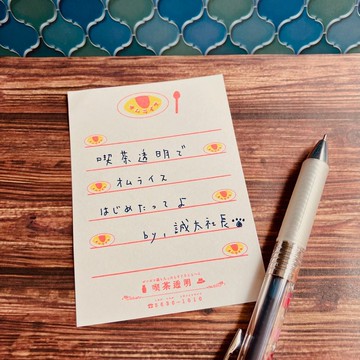 オムライス
喫茶透明で
オムライス
はじめたってよ
by, 誠太社長
喫茶透明